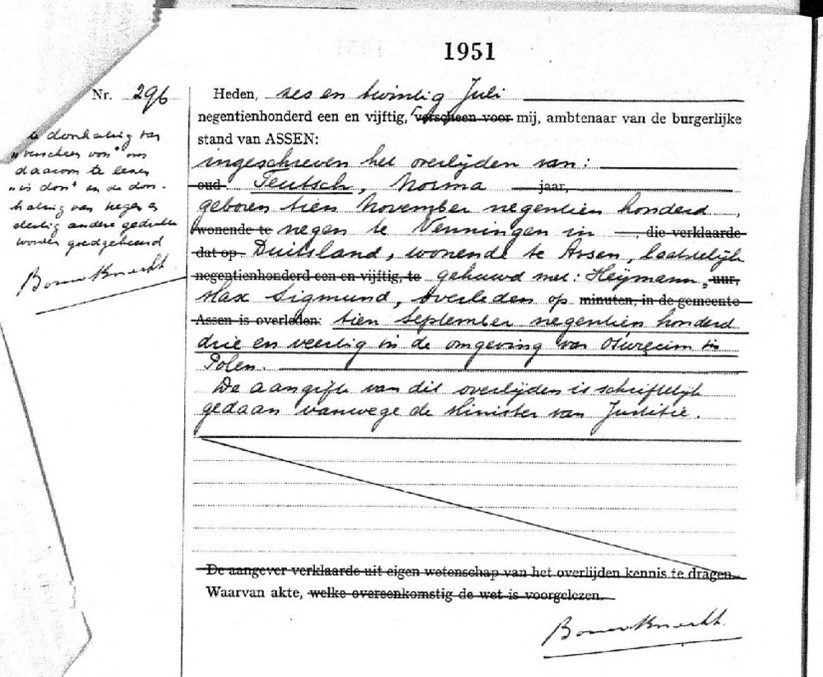 1951
Nr. 296
Heden, ses en twintig Juli
negentienhonderd een en vijftig, verscheen voor mij, ambtenaar van de burgerlijke
stand van ASSEN:
ingeschreven het overlijden van:
oud Teutsch, Norma jaar,
geboren tien November negentien honderd
wonende te negen te Venningen in , die verklaarde
dat op Duitsland, wonende te Assen, laatstelijk
negentienhonderd een en vijftig, te gehuwd met: Heijmann, uur,
Max Sigmund, overleden op minuten, in de gemeente
Assen is overleden: tien September negentien honderd
drie en veertig in de omgeving van Oswiecim in
Polen.
De aangifte van dit overlijden is schriftelijk
gedaan vanwege de Minister van Justitie.
De aangever verklaarde uit eigen wetenschap van het overlijden kennis te dragen.
Waarvan akte, welke overeenkomstig de wet is voorgelezen.
Bouwknecht
de doorhaling van
"verscheen voor" en
daarom te lezen
"is door" en de door-
haling van negen en
dertig andere gedrukte
woorden goedgekeurd
Bouwknecht